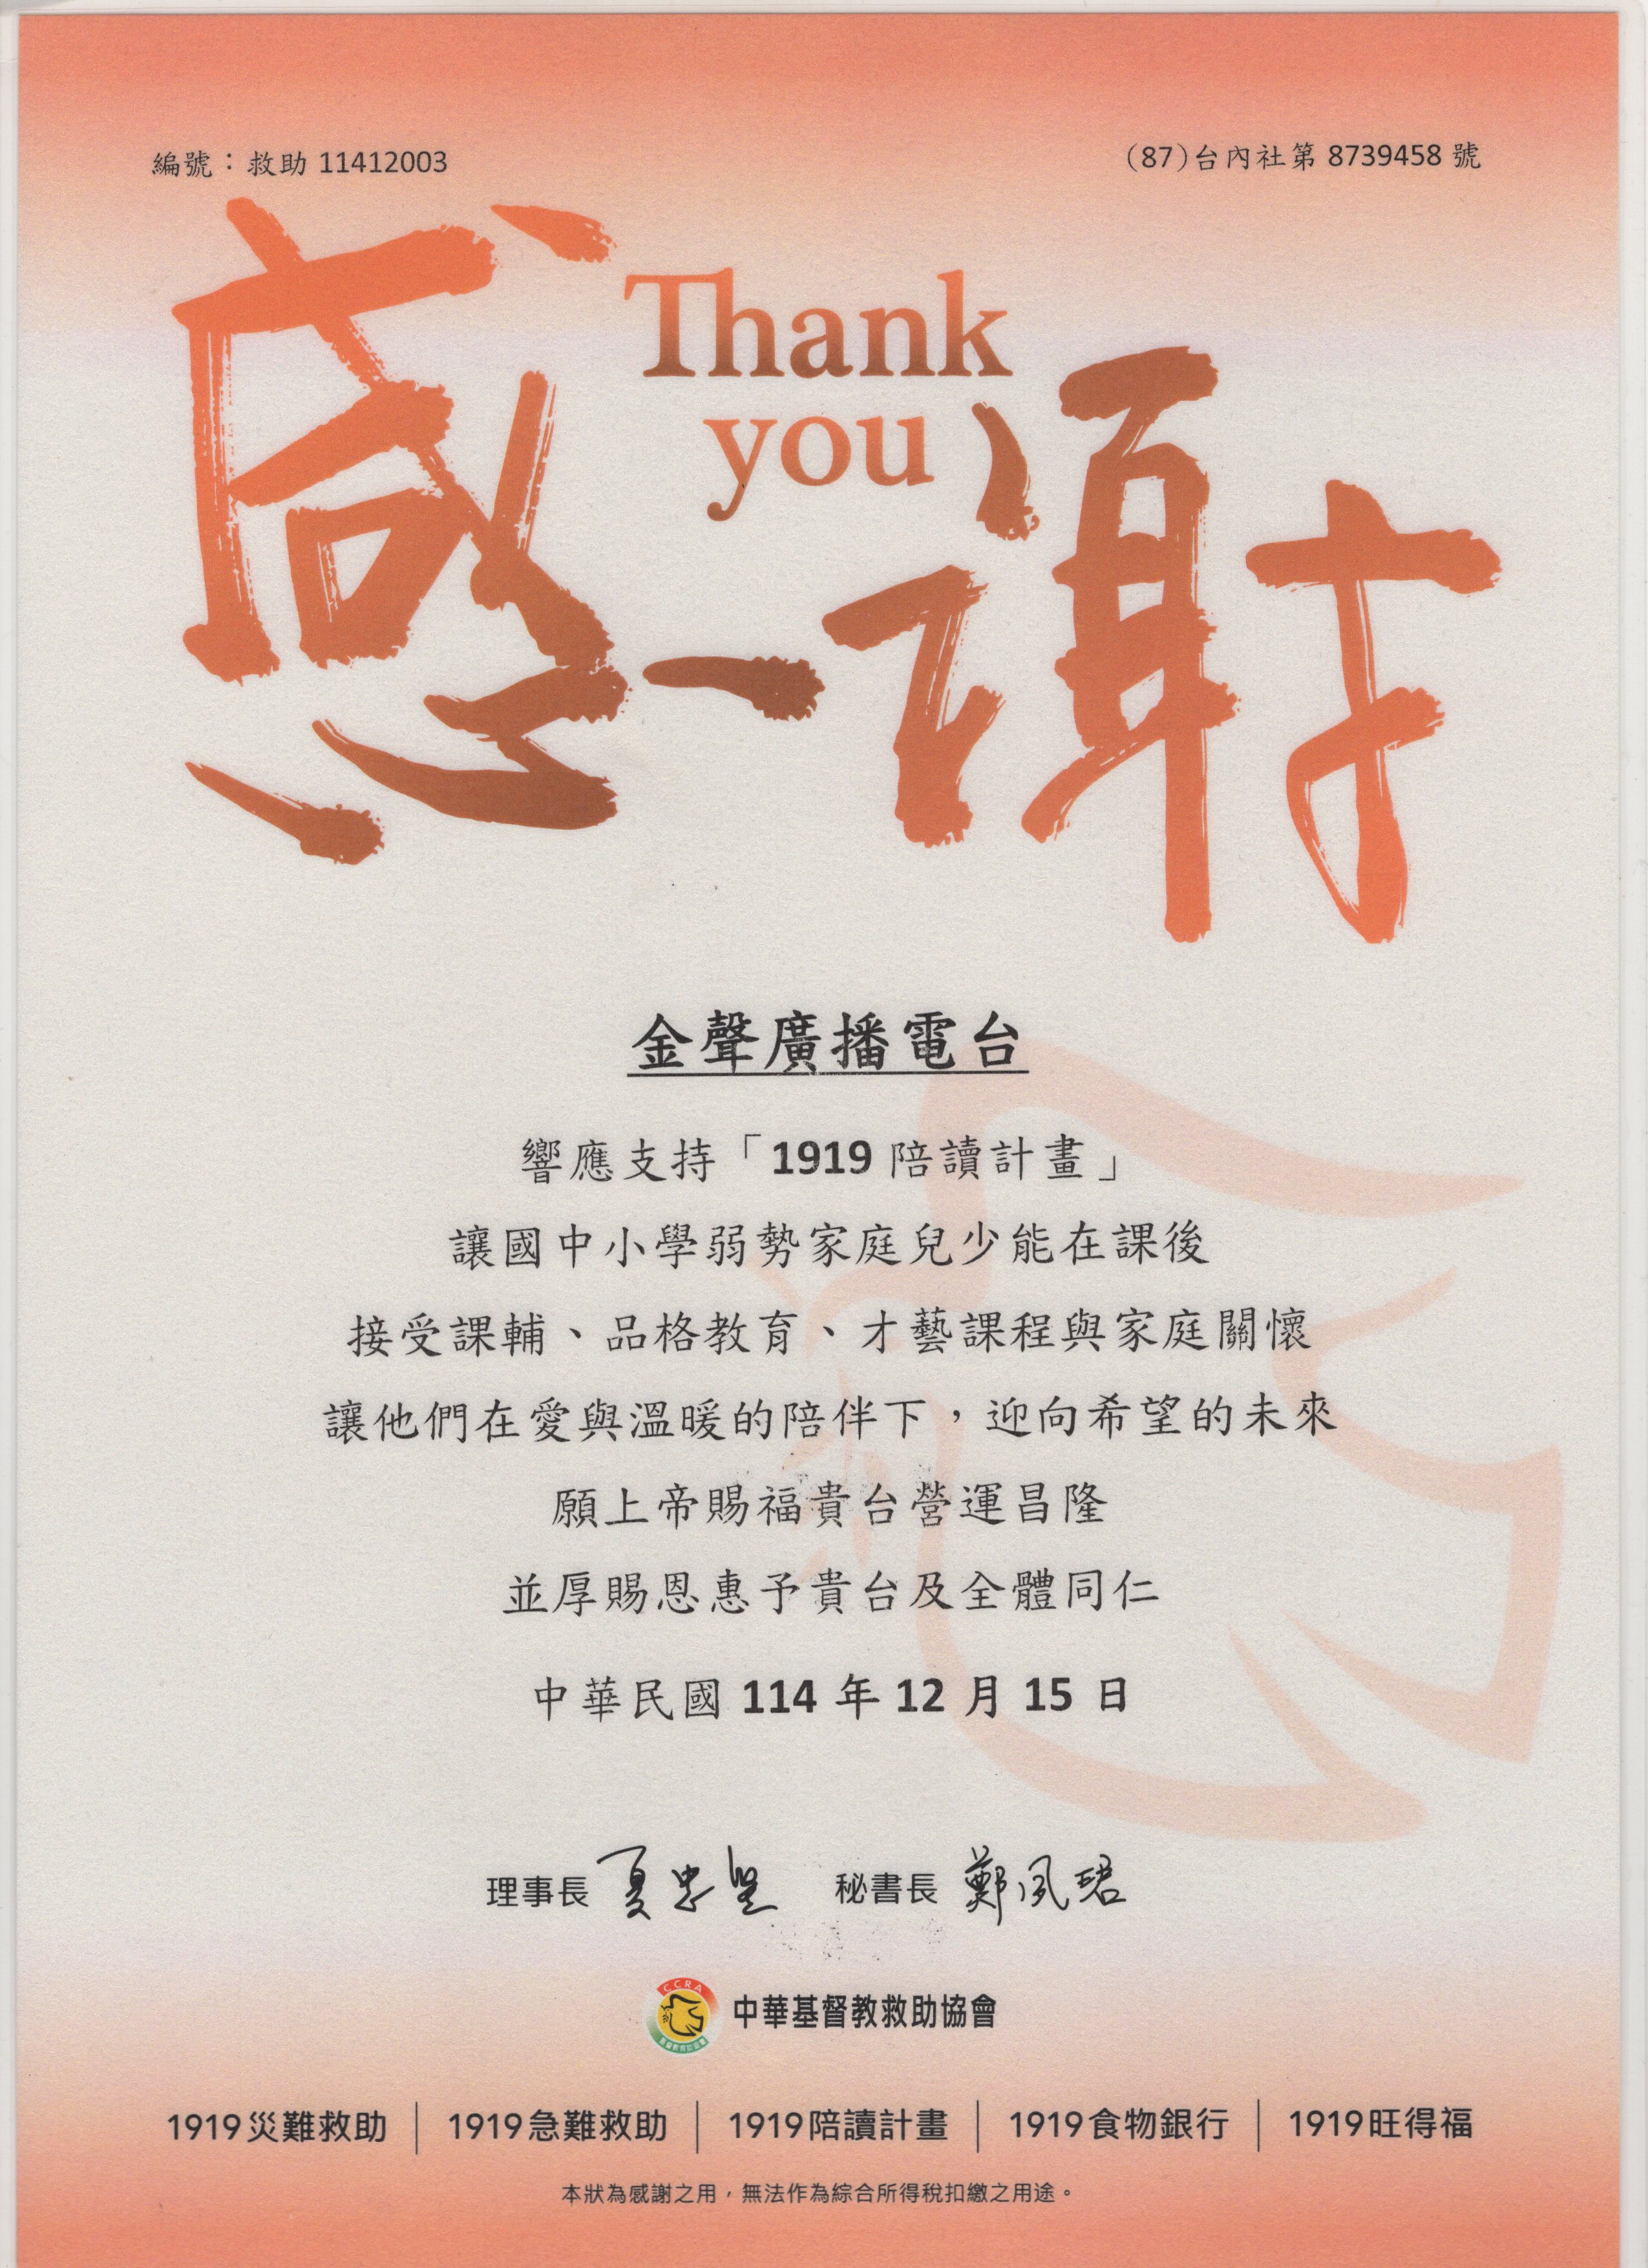 編號：救助 11412003
(87)台內社第 8739458 號
感謝
Thank
you
金聲廣播電台
響應支持「1919 陪讀計畫」
讓國中小學弱勢家庭兒少能在課後
接受課輔、品格教育、才藝課程與家庭關懷
讓他們在愛與溫暖的陪伴下，迎向希望的未來
願上帝賜福貴台營運昌隆
並厚賜恩惠予貴台及全體同仁
中華民國 114 年 12 月 15 日
理事長 夏忠堅 秘書長 鄭夙珺
CCRA
中華基督教救助協會
1919災難救助 | 1919急難救助 | 1919陪讀計畫 | 1919食物銀行 | 1919旺得福
本狀為感謝之用，無法作為綜合所得稅扣繳之用途。